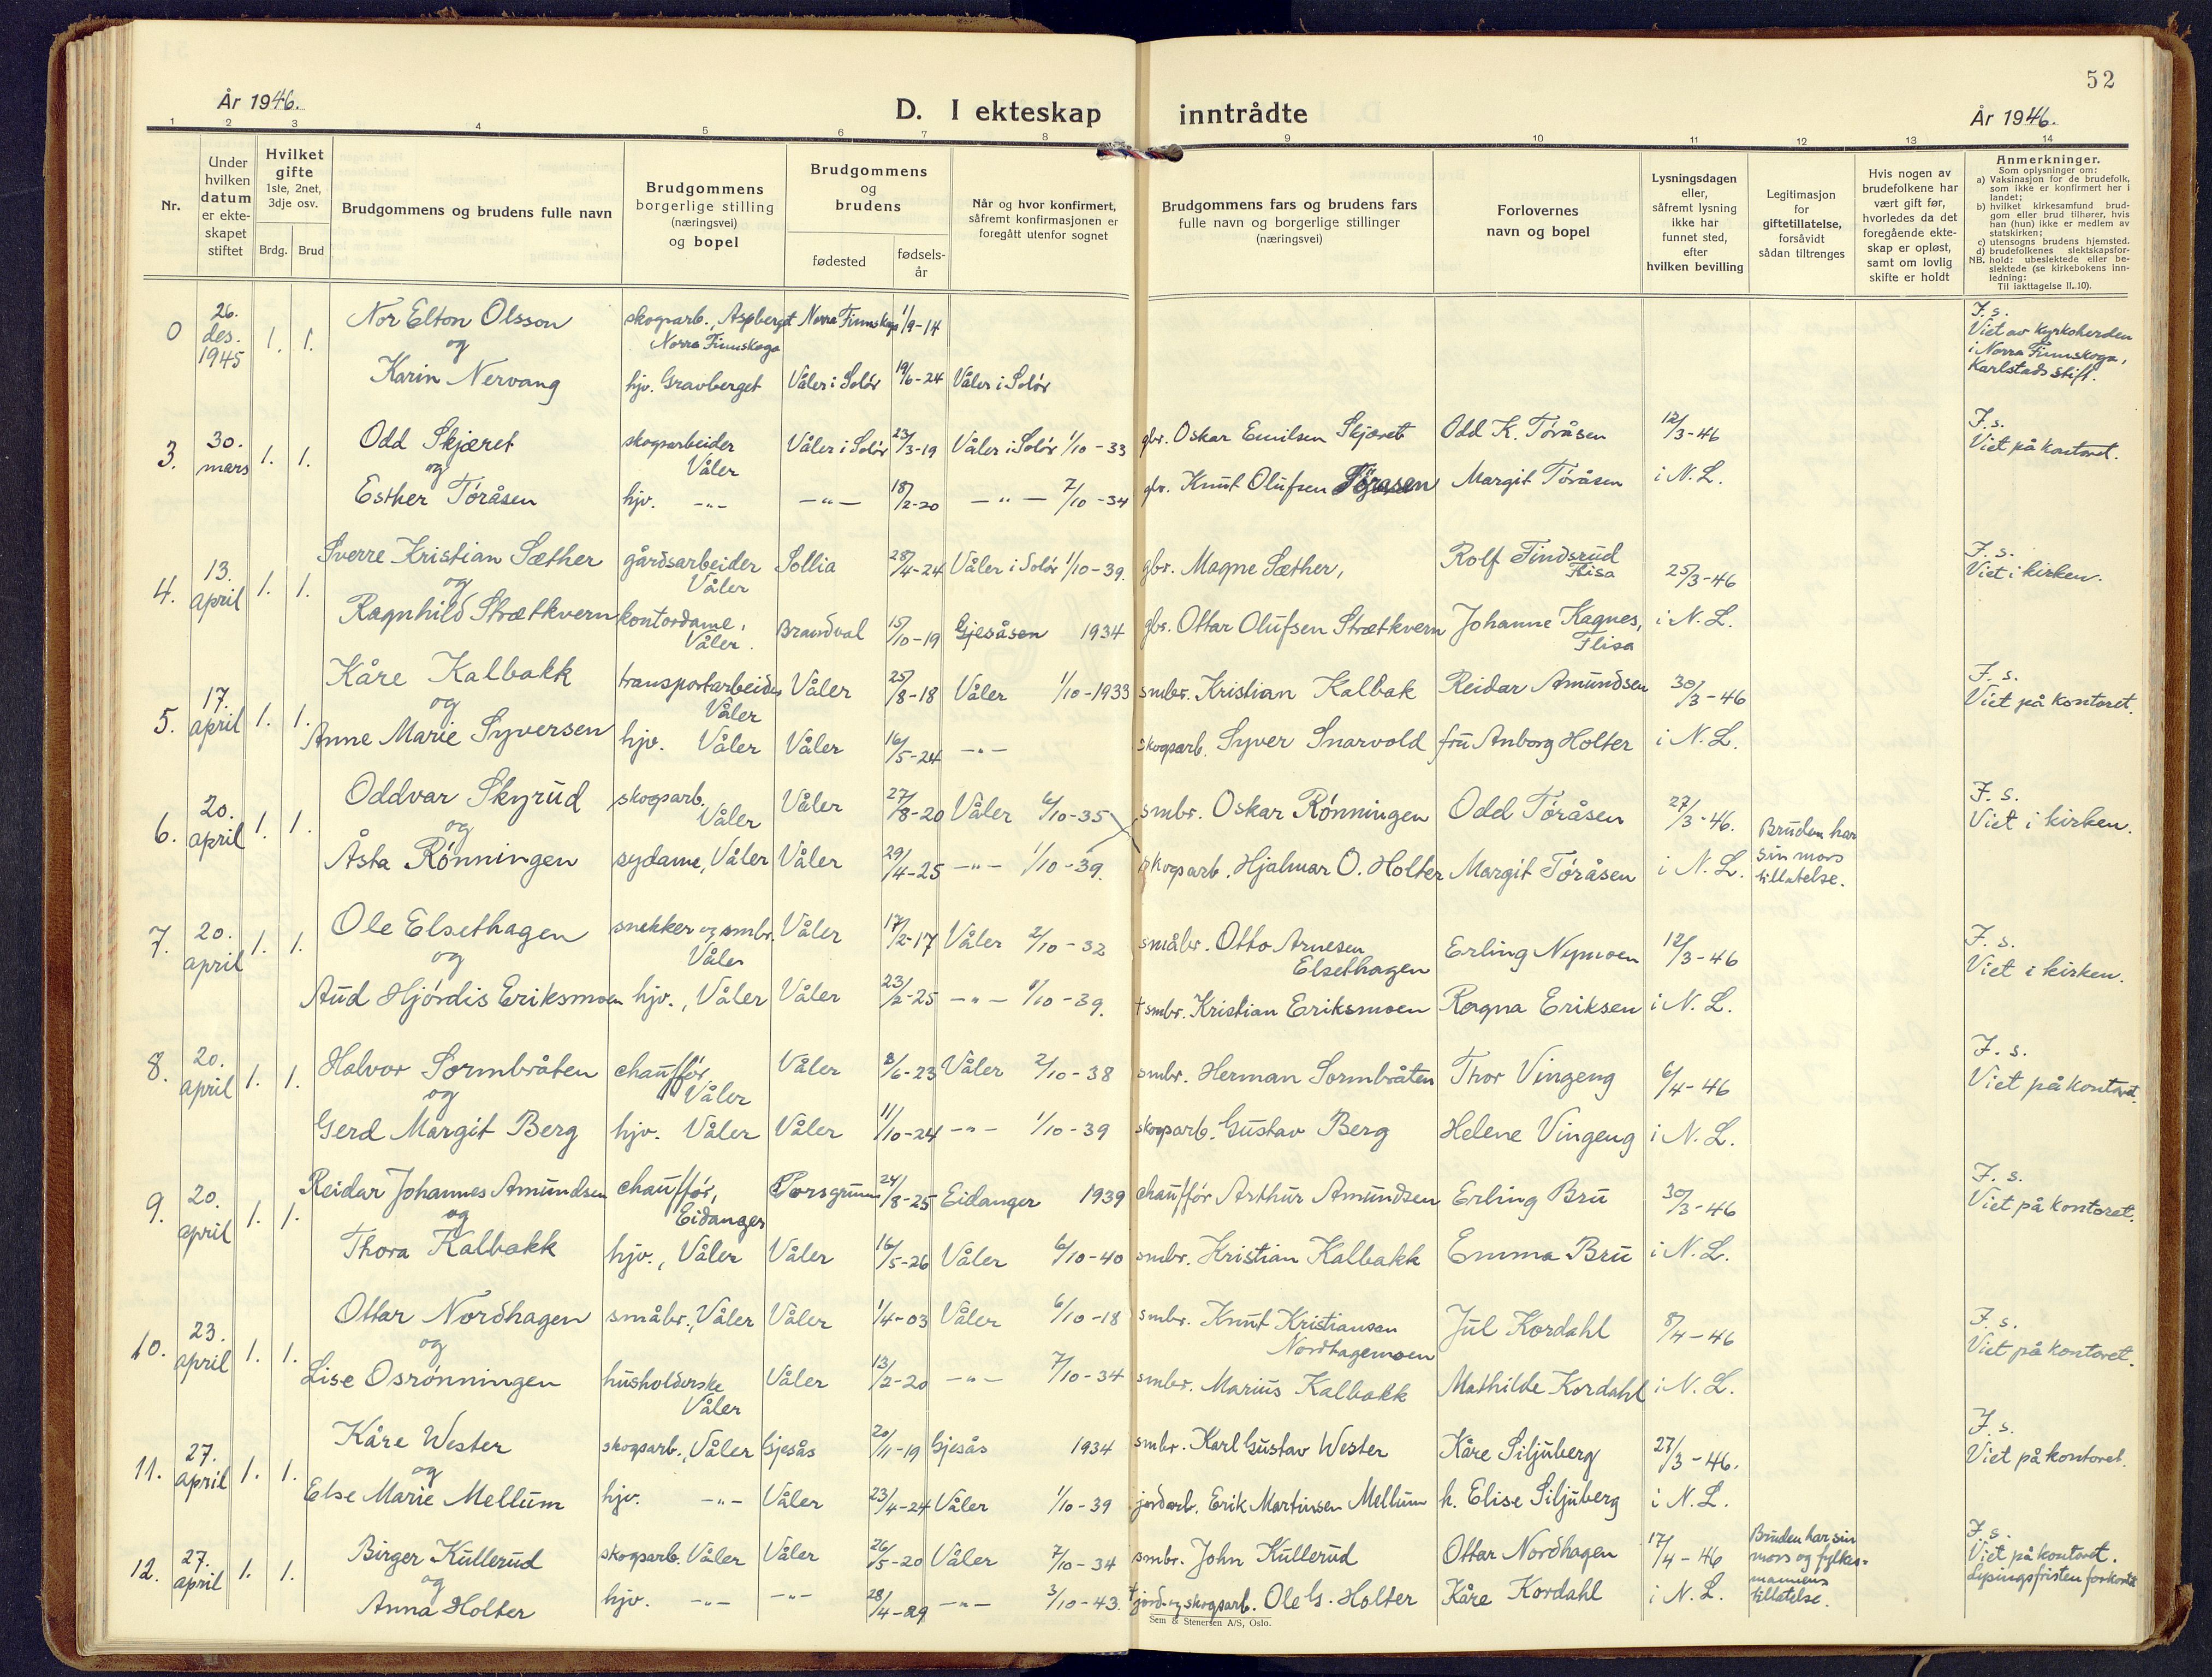 52
År 1946.
D. I ekteskap inntrådte
År 1946.
1 2 3 4 5 6 7 8 9 10 11 12 13 14
Nr.
Under hvilken datum er ekteskapet stiftet
Hvilket gifte 1ste, 2net, 3dje osv.
Brdg. Brud
Brudgommens og brudens fulle navn
Brudgommens borgerlige stilling (næringsvei) og bopel
Brudgommens og brudens
fødested
fødselsår
Når og hvor konfirmert, såfremt konfirmasjonen er foregått utenfor sognet
Brudgommens fars og brudens fars fulle navn og borgerlige stillinger (næringsvei)
Forlovernes navn og bopel
Lysningsdagen eller, såfremt lysning ikke har funnet sted, efter hvilken bevilling
Legitimasjon for giftetillatelse, forsåvidt sådan tiltrenges
Hvis nogen av brudefolkene har vært gift før, hvorledes da det foregående ekteskap er opløst, samt om lovlig skifte er holdt
Anmerkninger.
Som oplysninger om:
a) Vaksinasjon for de brudefolk, som ikke er konfirmert her i landet;
b) hvilket kirkesamfund brudgom eller brud tilhører, hvis han (hun) ikke er medlem av statskirken;
c) utensogns brudens hjemsted.
d) brudefolkenes slektskapsforhold: ubeslektede eller beslektede (se kirkebokens innledning:
NB.
Til iakttagelse II. 10).
0 26. des. 1945 1. 1. Nor Elton Olsson skogarb., Aspberget Norra Finnskoga Norra Finnskoga 1/9-14 F.s. Viet av kyrkoherden i Norra Finnskoga, Karlstads stift.
og
Karin Nervang hjv. Gravberget Våler i Solør 19/6-24 Våler i Solør
3. 30. mars 1. 1. Odd Skjæret skogarbeider Våler Våler i Solør 23/3-19 Våler i Solør 1/10-33 gbr. Oskar Emilsen Skjæret Odd K. Tøråsen 12/3-46 F.s. Viet på kontoret.
og
Esther Tøråsen hjv. -"- -"- 18/2-20 -"- 7/10-34 gbr. Knut Olufsen Tøråsen Margit Tøråsen i N.L.
4. 13. april 1. 1. Sverre Kristian Sæther gårdsarbeider Våler Sollia 28/4-24 Våler i Solør 1/10-39. gbr. Magne Sæther, Rolf Tindsrud Flisa 25/3-46 F.s. Viet i kirken.
og
Ragnhild Strætkvern kontordame, Våler. Brandval 15/10-19 Gjesåsen 1934 gbr. Ottar Olufsen Strætkvern Johanne Kagnes, Flisa i N.L.
5. 17. april 1. 1. Kåre Kalbakk transportarbeider Våler Våler 25/8-18 Våler 1/10-1933 smbr. Kristian Kalbak Reidar Amundsen 30/3-46 F.s. Viet på kontoret.
og
Anne Marie Syversen hjv. Våler Våler 16/5-24 -"- skogsarb. Syver Snarvold fru Anborg Holter i N.L.
6. 20. april 1. 1. Oddvar Skyrud skogsarb. Våler Våler 27/8-20 Våler 6/10-35 smbr. Oskar Rønningen Odd Tøråsen 27/3-46. Bruden har sin mors tillatelse. F.s. Viet i kirken.
og
Åsta Rønningen sydame, Våler Våler 29/4-25 -"- 1/10-39. skogsarb. Hjalmar O. Holter Margit Tøråsen i N.L.
7. 20. april 1. 1. Ole Elsethagen snekker og smbr. Våler Våler 17/2-17 Våler 2/10-32 småbr. Otto Arnesen Elsethagen Erling Nymoen 12/3-46 F.s. Viet i kirken.
og
Aud Hjørdis Eriksmoen hjv., Våler Våler 23/2-25 -"- 1/10-39. † smbr. Kristian Eriksmoen Ragna Eriksen i N.L.
8. 20. april 1. 1. Halvor Sormbråten chauffør, Våler Våler 8/6-23 Våler 2/10-38 smbr. Herman Sormbråten Thor Vingeng 6/4-46 F.s. Viet på kontoret.
og
Gerd Margit Berg hjv. Våler Våler 11/10-24 -"- 1/10-39 skogsarb. Gustav Berg Helene Vingeng i N.L.
9. 20. april 1. 1. Reidar Johannes Amundsen chauffør, Eidanger Porsgrunn 24/8-25 Eidanger 1939 chauffør Arthur Amundsen Erling Bru 30/3-46 F.s. Viet på kontoret.
og
Thora Kalbakk hjv., Våler Våler 16/5-26 Våler 6/10-40 smbr. Kristian Kalbakk Emma Bru i N.L.
10. 23. april 1. 1. Ottar Nordhagen småbr., Våler Våler 1/4-03 Våler 6/10-18 smbr. Knut Kristiansen Nordhagemoen Jul Kordahl 8/4-46 F.s. Viet på kontoret.
og
Lise Osrønningen husholderske Våler Våler 13/2-20 -"- 7/10-34 smbr. Marius Kalbakk Mathilde Kordahl i N.L.
11. 27. april 1. 1. Kåre Wester skogsarb., Våler Gjesås 20/11-19 Gjesås 1934 smbr. Karl Gustav Wester Kåre Siljuberg 27/3-46. F.s. Viet på kontoret.
og
Else Marie Mellum hjv. -"- Våler 23/4-24 Våler 1/10-39 jordarb. Erik Martinsen Mellum h. Elise Siljuberg i N.L.
12. 27. april 1. 1. Birger Kullerud skogsarb. Våler Våler 26/5-20 Våler 7/10-34 smbr. John Kullerud Ottar Nordhagen 17/4-46 Bruden har sin mors og fylkesmannens tillatelse. F.s. Viet på kontoret. Lysingsfristen forkortet
og
Anna Holter hjv. -"- -"- 28/4-29 -"- 3/10-43. † jord- og skogsarb. Ole G. Holter Kåre Kordahl i N.L.
Sem & Stenersen A/S, Oslo.